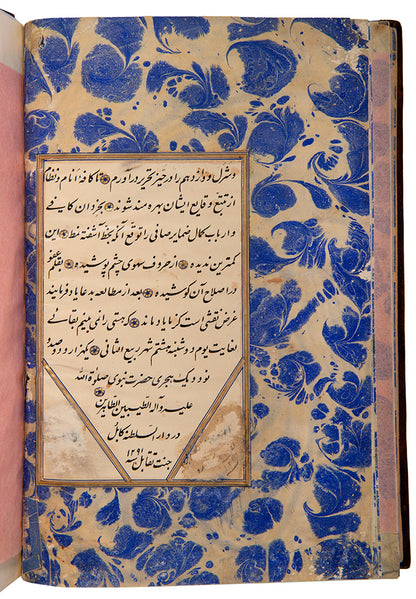 و شرل دوازدهم را در حیز تحریر در آورم تا کافهٔ انام و نظام
از تتبع وقایع ایشان بهره مند شوند بخردان کاینه
و ارباب کمال ضمایر صافی را توقع آنکه بخط آشفته نمط این
کمترین ندیده از حروف سهوی چشم پوشیده بقلم عفو
در اصلاح آن کوشیده بعد از مطالعه بدعا یاد فرمایند
غرض نقشی است کز ما یاد ماند که هستی را نمی بینم بقائی
بغایت یوم دوشنبه هشتم شهر ربیع الثانی یکهزار و دوصد
نود و یک هجری حضرت نبوی صلوة الله
علیه و آله الطیبین الطاهرین
در دار السلطنه کابل
جنت تقابل سنه ۱۲۹۱